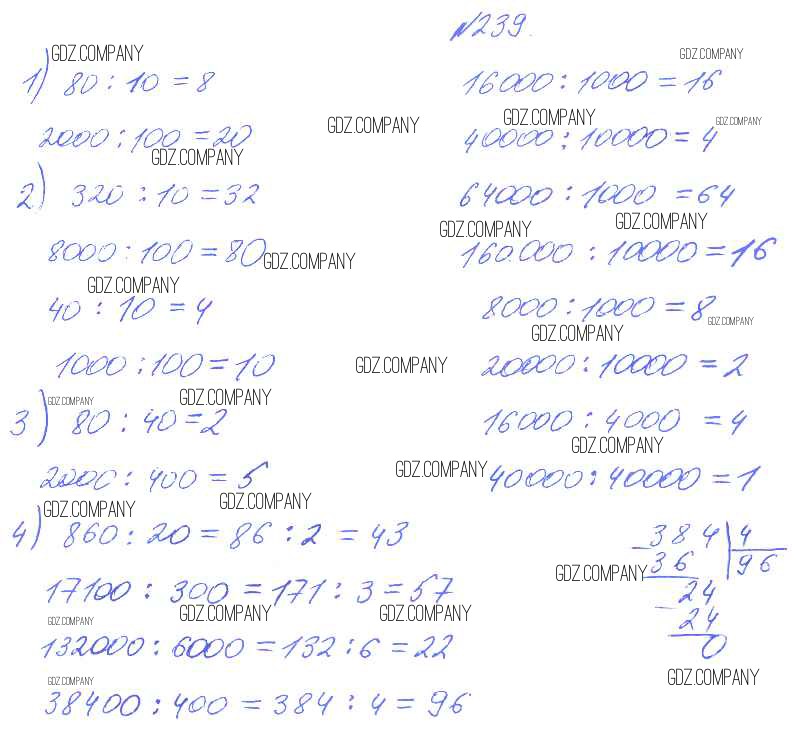 №239.
GDZ.COMPANY
GDZ.COMPANY
1) 80 : 10 = 8 16000 : 1000 = 16
GDZ.COMPANY GDZ.COMPANY GDZ.COMPANY
2000 : 100 = 20 40000 : 10000 = 4
GDZ.COMPANY
2) 320 : 10 = 32 64000 : 1000 = 64
GDZ.COMPANY GDZ.COMPANY
8000 : 100 = 80 160000 : 10000 = 16
GDZ.COMPANY
GDZ.COMPANY
40 : 10 = 4 8000 : 1000 = 8
GDZ.COMPANY
GDZ.COMPANY
1000 : 100 = 10 20000 : 10000 = 2
GDZ.COMPANY
GDZ.COMPANY GDZ.COMPANY
3) 80 : 40 = 2 16000 : 4000 = 4
GDZ.COMPANY
2000 : 400 = 5 40000 : 40000 = 1
GDZ.COMPANY
GDZ.COMPANY GDZ.COMPANY
4) 860 : 20 = 86 : 2 = 43
17100 : 300 = 171 : 3 = 57
GDZ.COMPANY GDZ.COMPANY GDZ.COMPANY
132000 : 6000 = 132 : 6 = 22
GDZ.COMPANY
38400 : 400 = 384 : 4 = 96
384 | 4
- 36 96
GDZ.COMPANY
24
- 24
0
GDZ.COMPANY